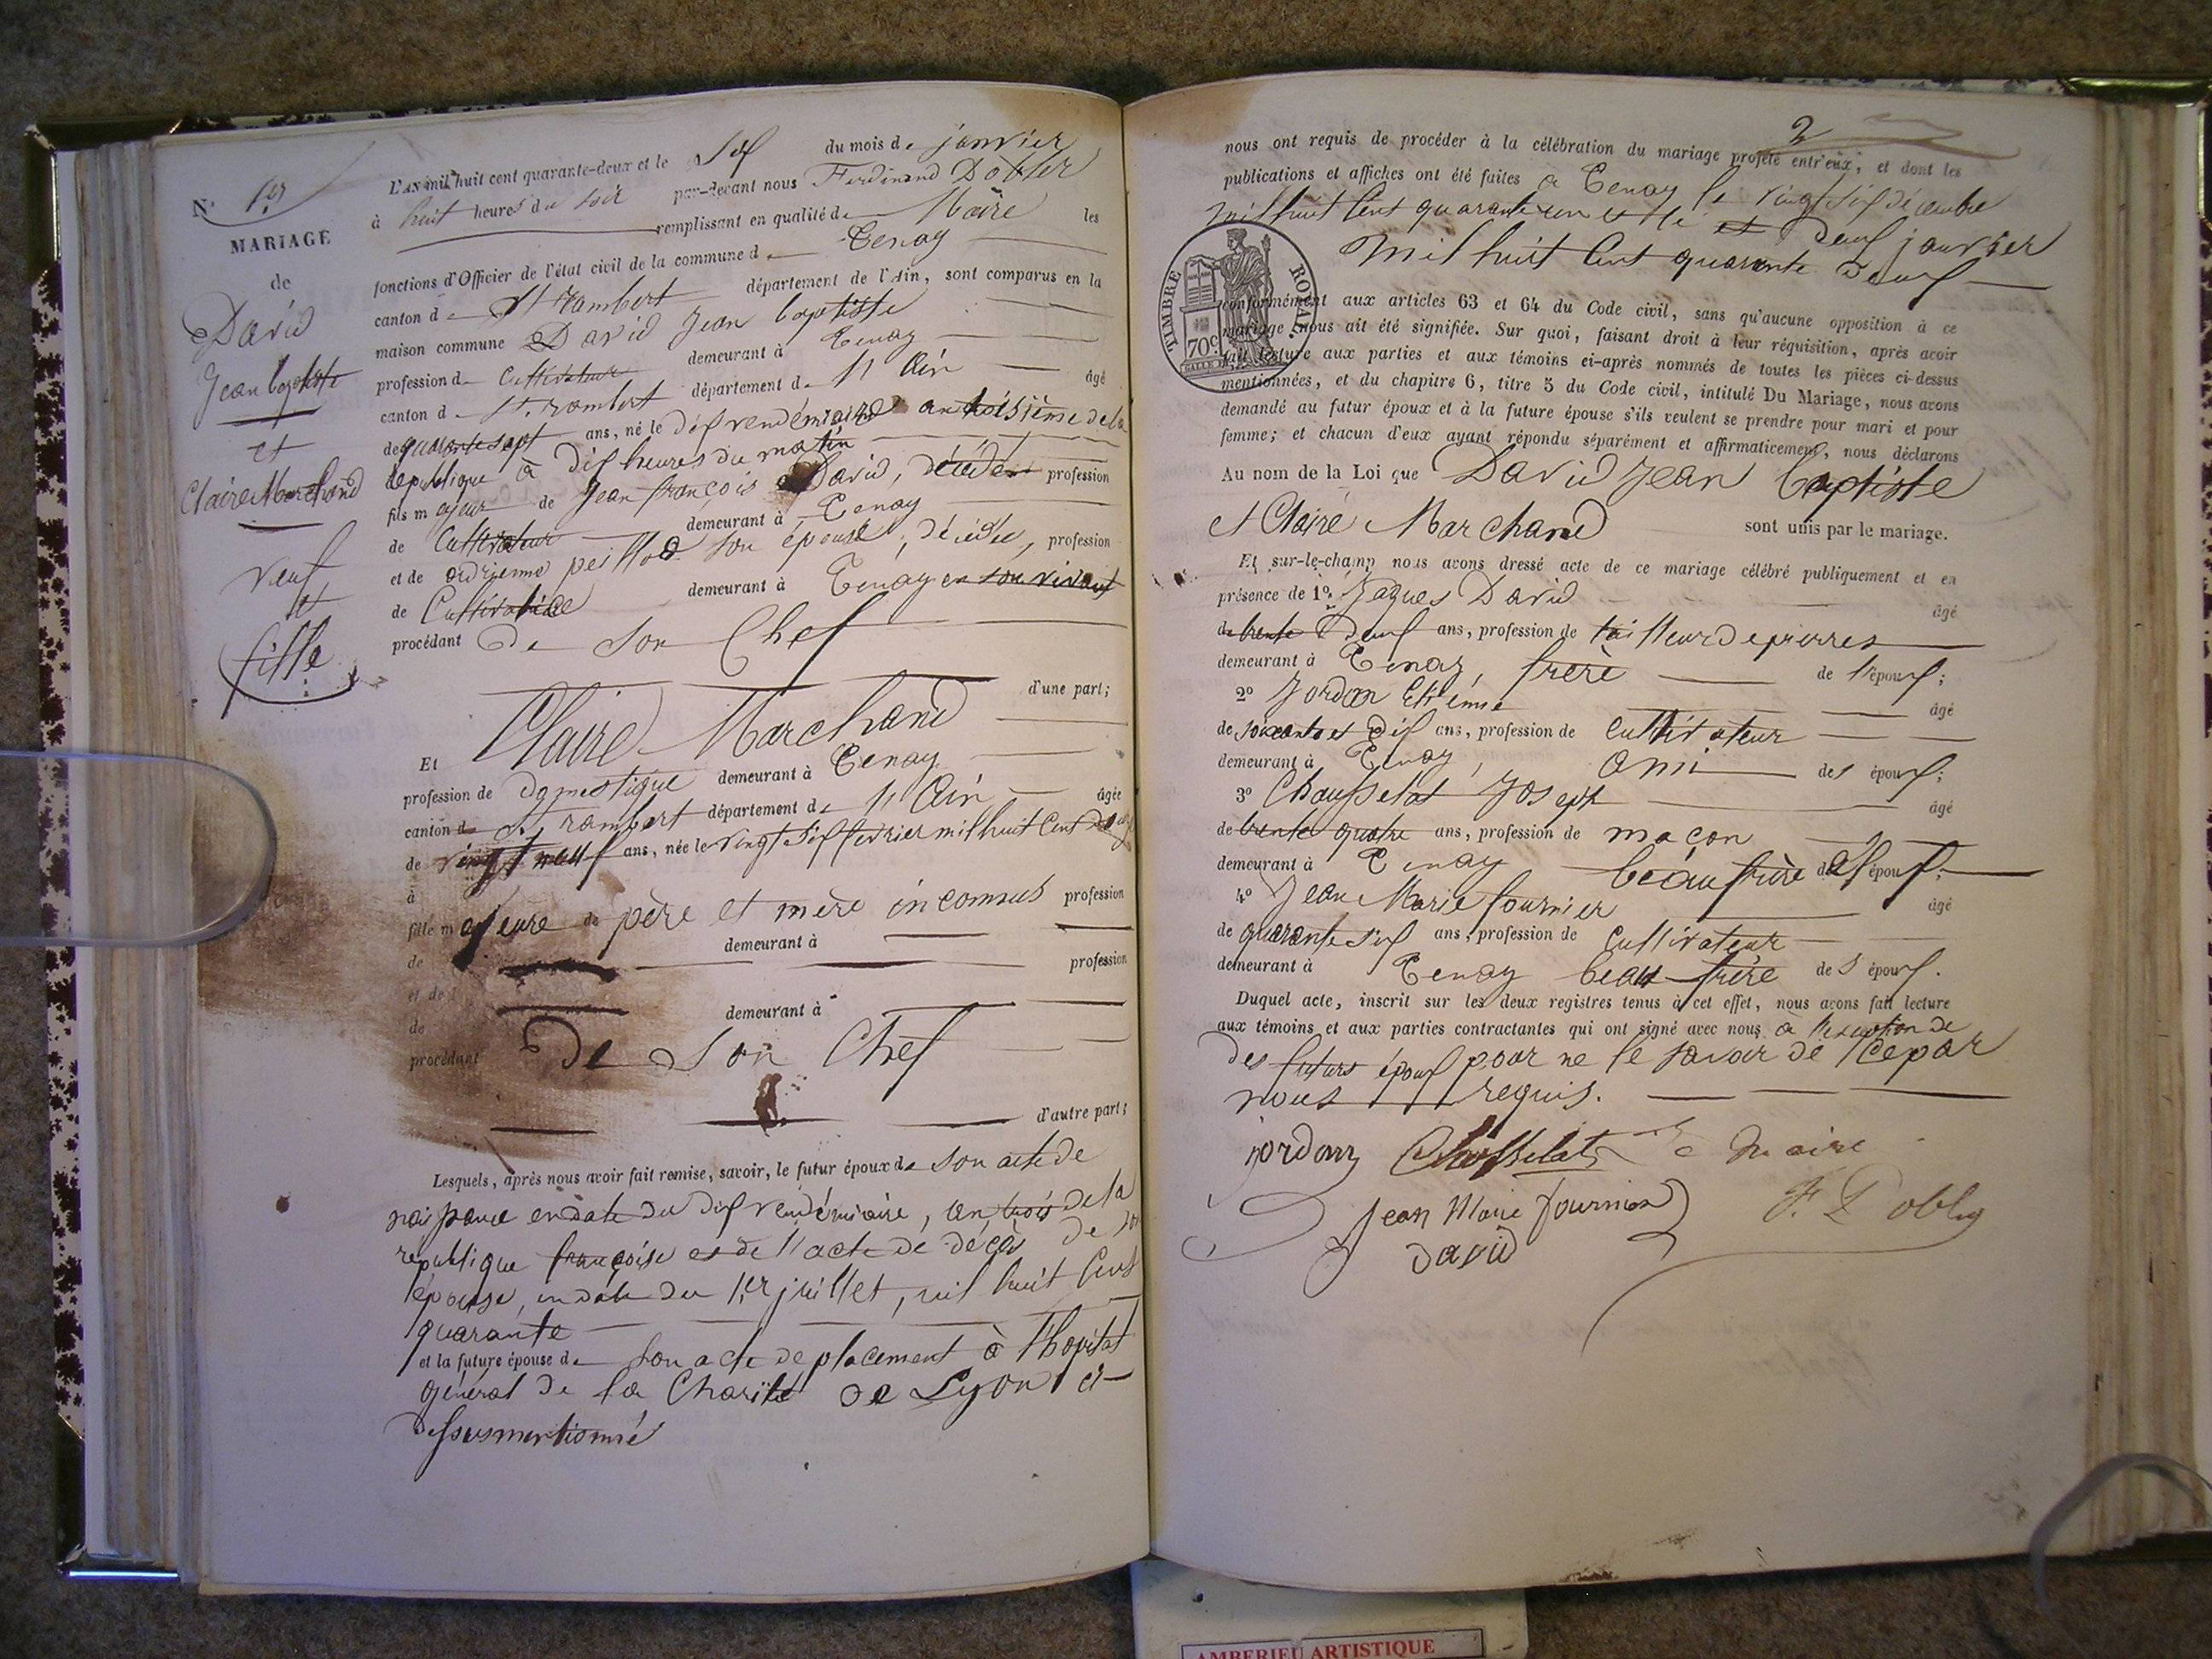 N.º 1er
MARIAGE
de
David
Jean baptiste
et
Claire Marchand
veuf
et
fille
L'AN mil huit cent quarante-deux et le six du mois de janvier
à huit heures du soir par-devant nous Ferdinand Dobler
remplissant en qualité de Maire les
fonctions d'Officier de l'état civil de la commune d Tenay
canton d St rambert département de l'Ain, sont comparus en la
maison commune David Jean baptiste
profession d Cultivateur demeurant à Tenay
canton d St. rambert département d l'Ain âgé
de quarante sept ans, né le dix vendémiaire an troisième de la
republique à dix heures du matin
fils majeur de Jean françois David, décédé profession
de Cultivateur demeurant à Tenay
et de son épouse, décédée, profession
de Cultivatrice demeurant à Tenay en son vivant
procédant de son Chef
d'une part;
Et Claire Marchand
profession de domestique demeurant à Tenay
canton d St rambert département d l'Ain âgée
de vingt neuf ans, née le vingt six fevrier mil huit Cent
à
fille majeure de père et mère inconnus profession
de demeurant à
et de profession
de demeurant à
procédant de son Chef
d'autre part;
Lesquels, après nous avoir fait remise, savoir, le futur époux de son acte de
naissance en date du dix vendémiaire, an trois de la
republique françoise et de l'acte de décès de son
épouse, en date du 1er juillet, mil huit Cent
quarante
et la future épouse de son acte de placement à l'hopital
général de la Charité de Lyon ci-
dessus mentionné
2
nous ont requis de procéder à la célébration du mariage projeté entr'eux, et dont les
publications et affiches ont été faites à Tenay le vingt six décembre
mil huit Cent quarante un et le deux janvier
mil huit Cent quarante deux
TIMBRE ROYAL
70c
conformément aux articles 63 et 64 du Code civil, sans qu'aucune opposition à ce
mariage nous ait été signifiée. Sur quoi, faisant droit à leur réquisition, après avoir
fait lecture aux parties et aux témoins ci-après nommés de toutes les pièces ci-dessus
mentionnées, et du chapitre 6, titre 5 du Code civil, intitulé Du Mariage, nous avons
demandé au futur époux et à la future épouse s'ils veulent se prendre pour mari et pour
femme; et chacun d'eux ayant répondu séparément et affirmativement, nous déclarons
Au nom de la Loi que David Jean baptiste
et Claire Marchand sont unis par le mariage.
Et sur-le-champ nous avons dressé acte de ce mariage célébré publiquement et en
présence de 1º Jaques David âgé
de trente deux ans, profession de tailleur de pierres
demeurant à Tenay, frère de l'époux;
2º Jordan Etiénne âgé
de soixante et dix ans, profession de cultivateur
demeurant à Tenay, ami des époux;
3º Chausselat Joseph âgé
de trente quatre ans, profession de maçon
demeurant à Tenay beau frère de l'époux;
4º Jean Marie fournier âgé
de quarante six ans, profession de cultivateur
demeurant à Tenay beau frère de l'époux.
Duquel acte, inscrit sur les deux registres tenus à cet effet, nous avons fait lecture
aux témoins et aux parties contractantes qui ont signé avec nous à l'exception de
des futurs époux pour ne le savoir de ce par
nous requis.
jordan Chausselat Le maire
Jean Marie fournier
David
AMBERIEU ARTISTIQUE